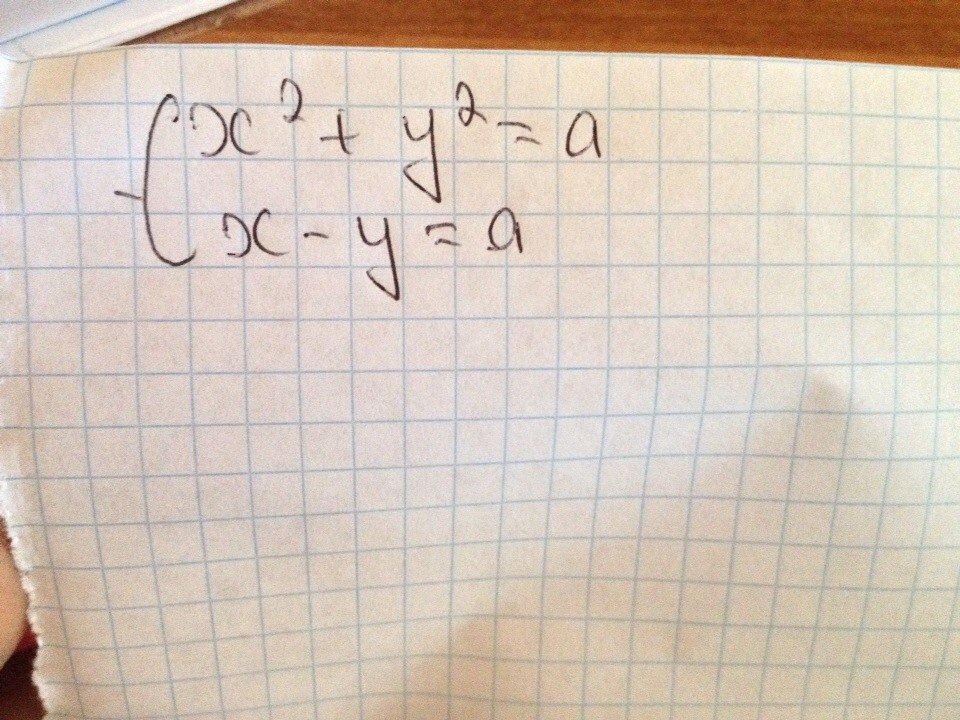 x² + y² = a
x - y = a